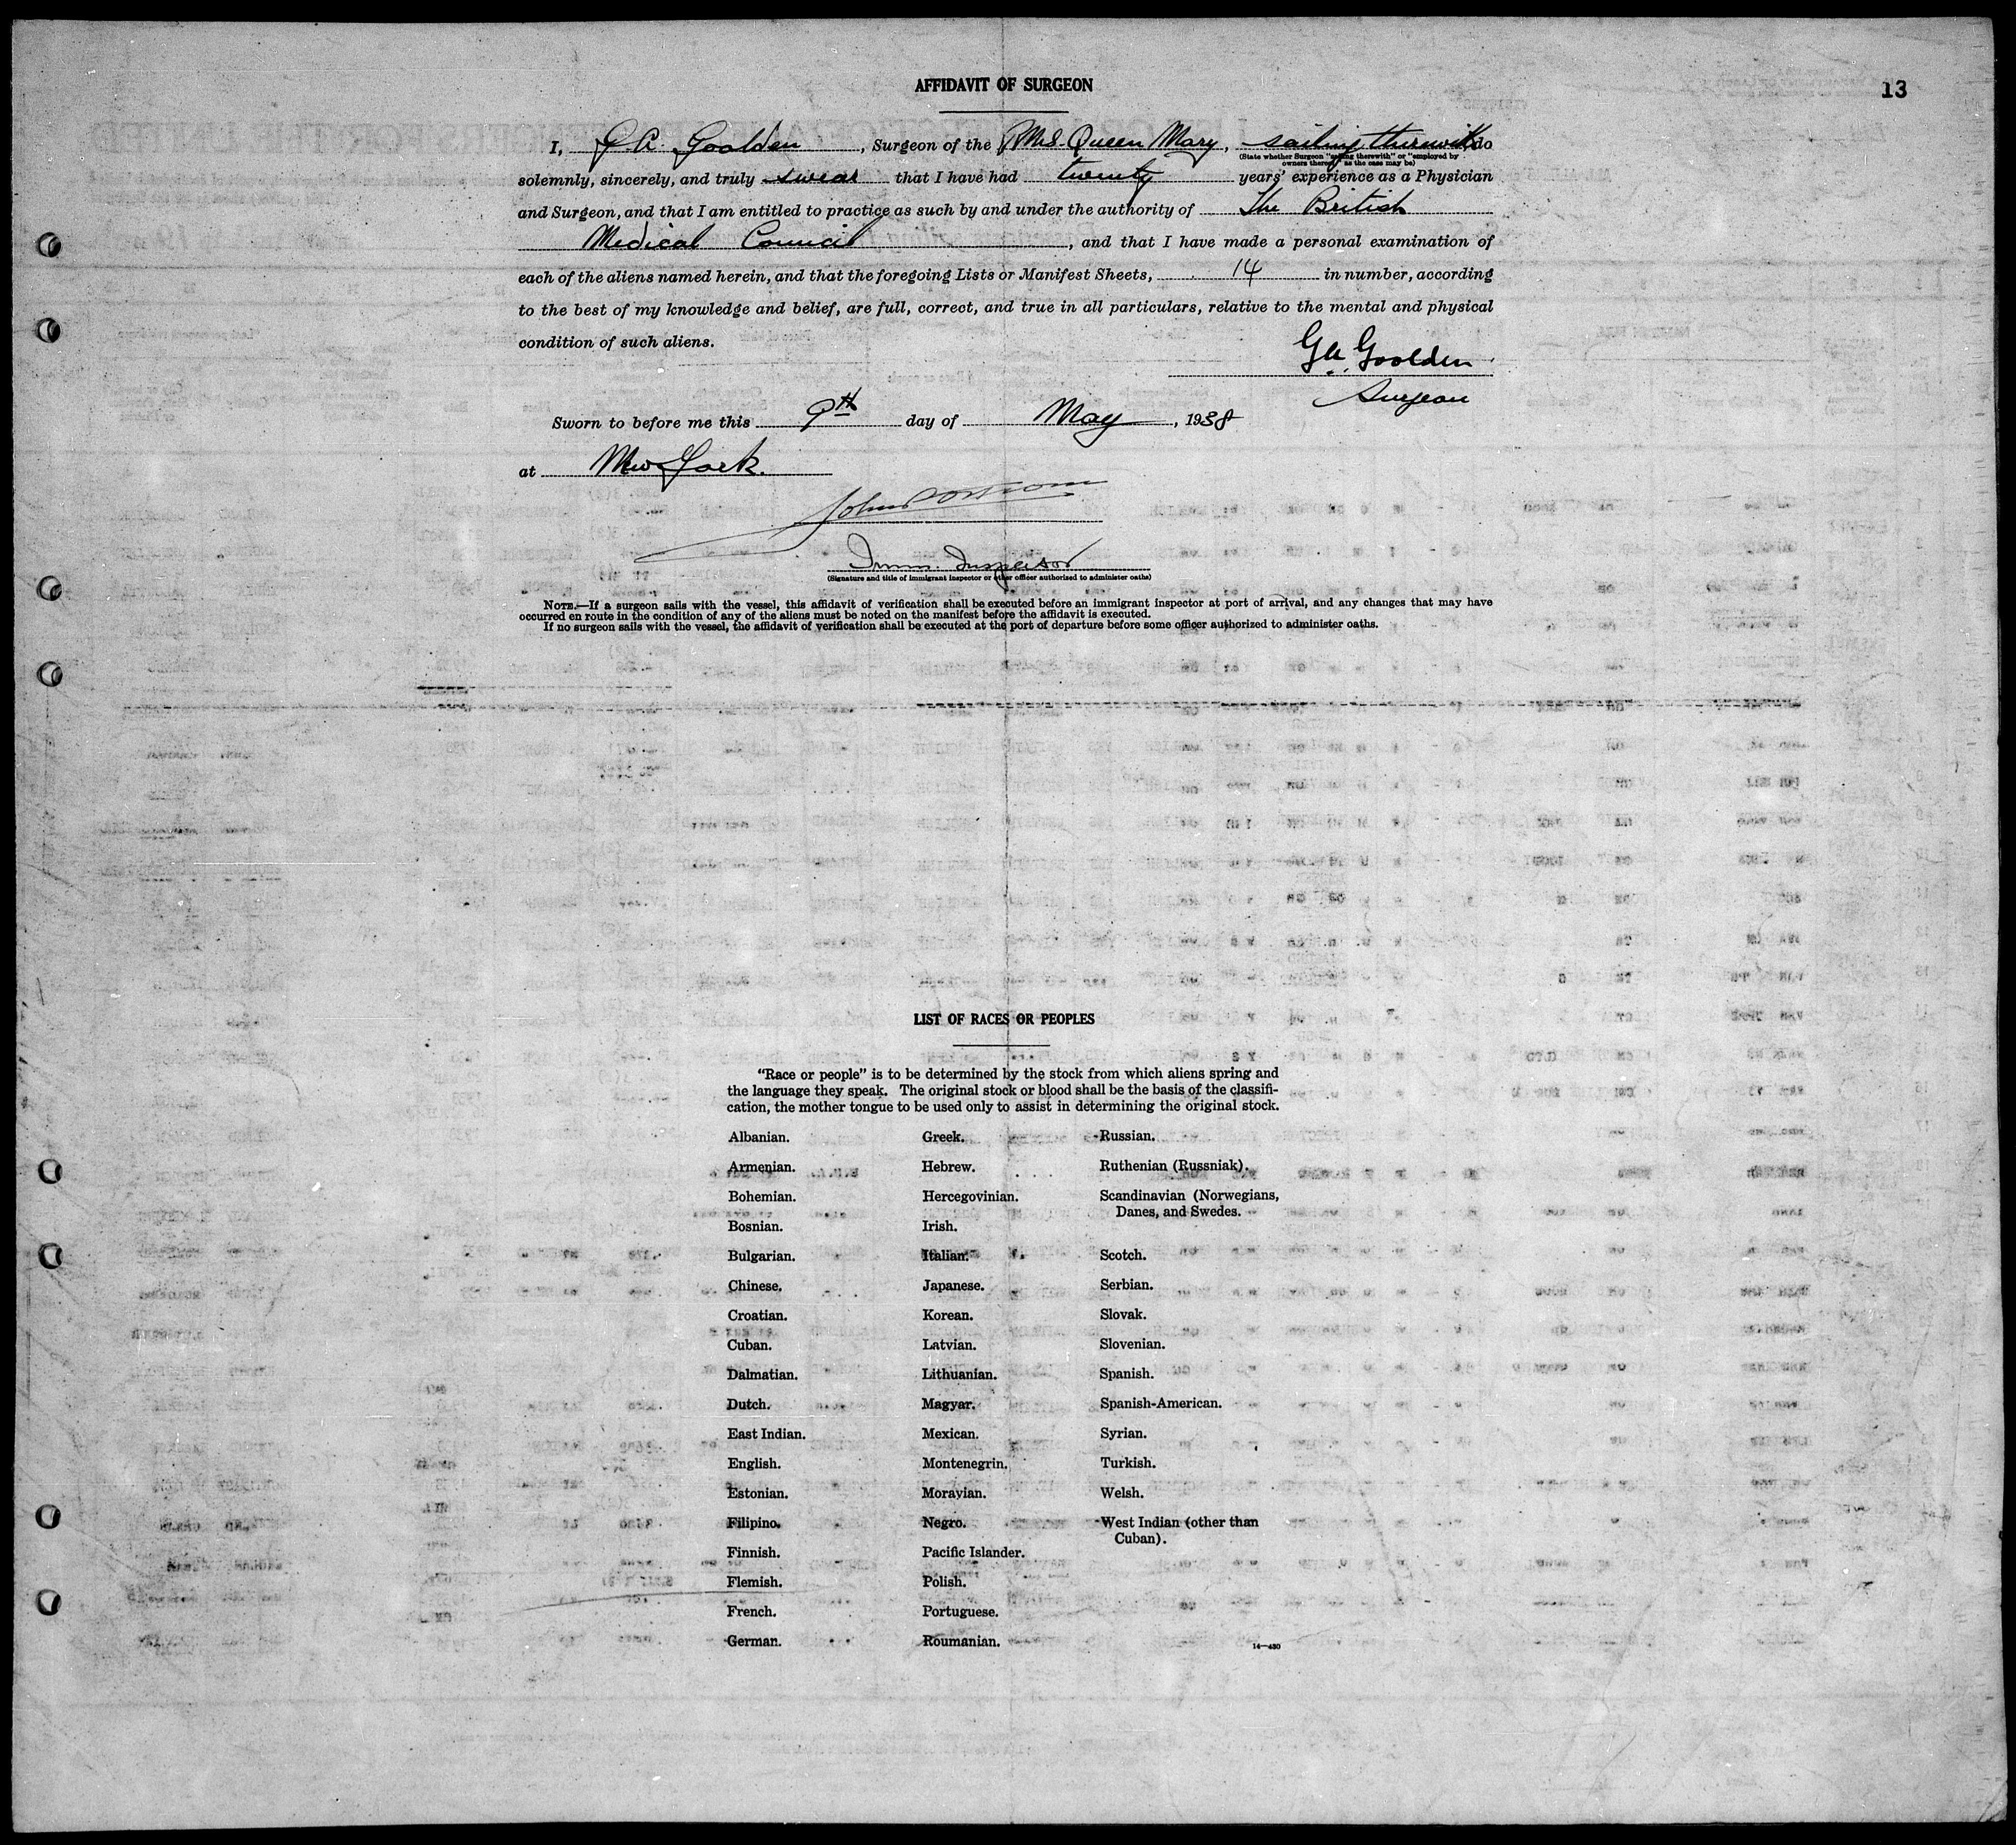 AFFIDAVIT OF SURGEON
13
I, G. A. Goolden, Surgeon of the RMS. Queen Mary, sailing therewith do
(State whether Surgeon "sailing therewith" or "employed by
owners thereof," as the case may be)
solemnly, sincerely, and truly swear that I have had twenty years' experience as a Physician
and Surgeon, and that I am entitled to practice as such by and under the authority of The British
Medical Council, and that I have made a personal examination of
each of the aliens named herein, and that the foregoing Lists or Manifest Sheets, 14 in number, according
to the best of my knowledge and belief, are full, correct, and true in all particulars, relative to the mental and physical
condition of such aliens.
G A. Goolden
Surgeon
Sworn to before me this 9th day of May, 1938
at New York.
John
Imm. Inspector
(Signature and title of immigrant inspector or other officer authorized to administer oaths)
NOTE.—If a surgeon sails with the vessel, this affidavit of verification shall be executed before an immigrant inspector at port of arrival, and any changes that may have
occurred en route in the condition of any of the aliens must be noted on the manifest before the affidavit is executed.
If no surgeon sails with the vessel, the affidavit of verification shall be executed at the port of departure before some officer authorized to administer oaths.
LIST OF RACES OR PEOPLES
"Race or people" is to be determined by the stock from which aliens spring and
the language they speak. The original stock or blood shall be the basis of the classifi-
cation, the mother tongue to be used only to assist in determining the original stock.
Albanian.
Armenian.
Bohemian.
Bosnian.
Bulgarian.
Chinese.
Croatian.
Cuban.
Dalmatian.
Dutch.
East Indian.
English.
Estonian.
Filipino.
Finnish.
Flemish.
French.
German.
Greek.
Hebrew.
Hercegovinian.
Irish.
Italian.
Japanese.
Korean.
Latvian.
Lithuanian.
Magyar.
Mexican.
Montenegrin.
Moravian.
Negro.
Pacific Islander.
Polish.
Portuguese.
Roumanian.
Russian.
Ruthenian (Russniak).
Scandinavian (Norwegians,
Danes, and Swedes.
Scotch.
Serbian.
Slovak.
Slovenian.
Spanish.
Spanish-American.
Syrian.
Turkish.
Welsh.
West Indian (other than
Cuban).
14—430